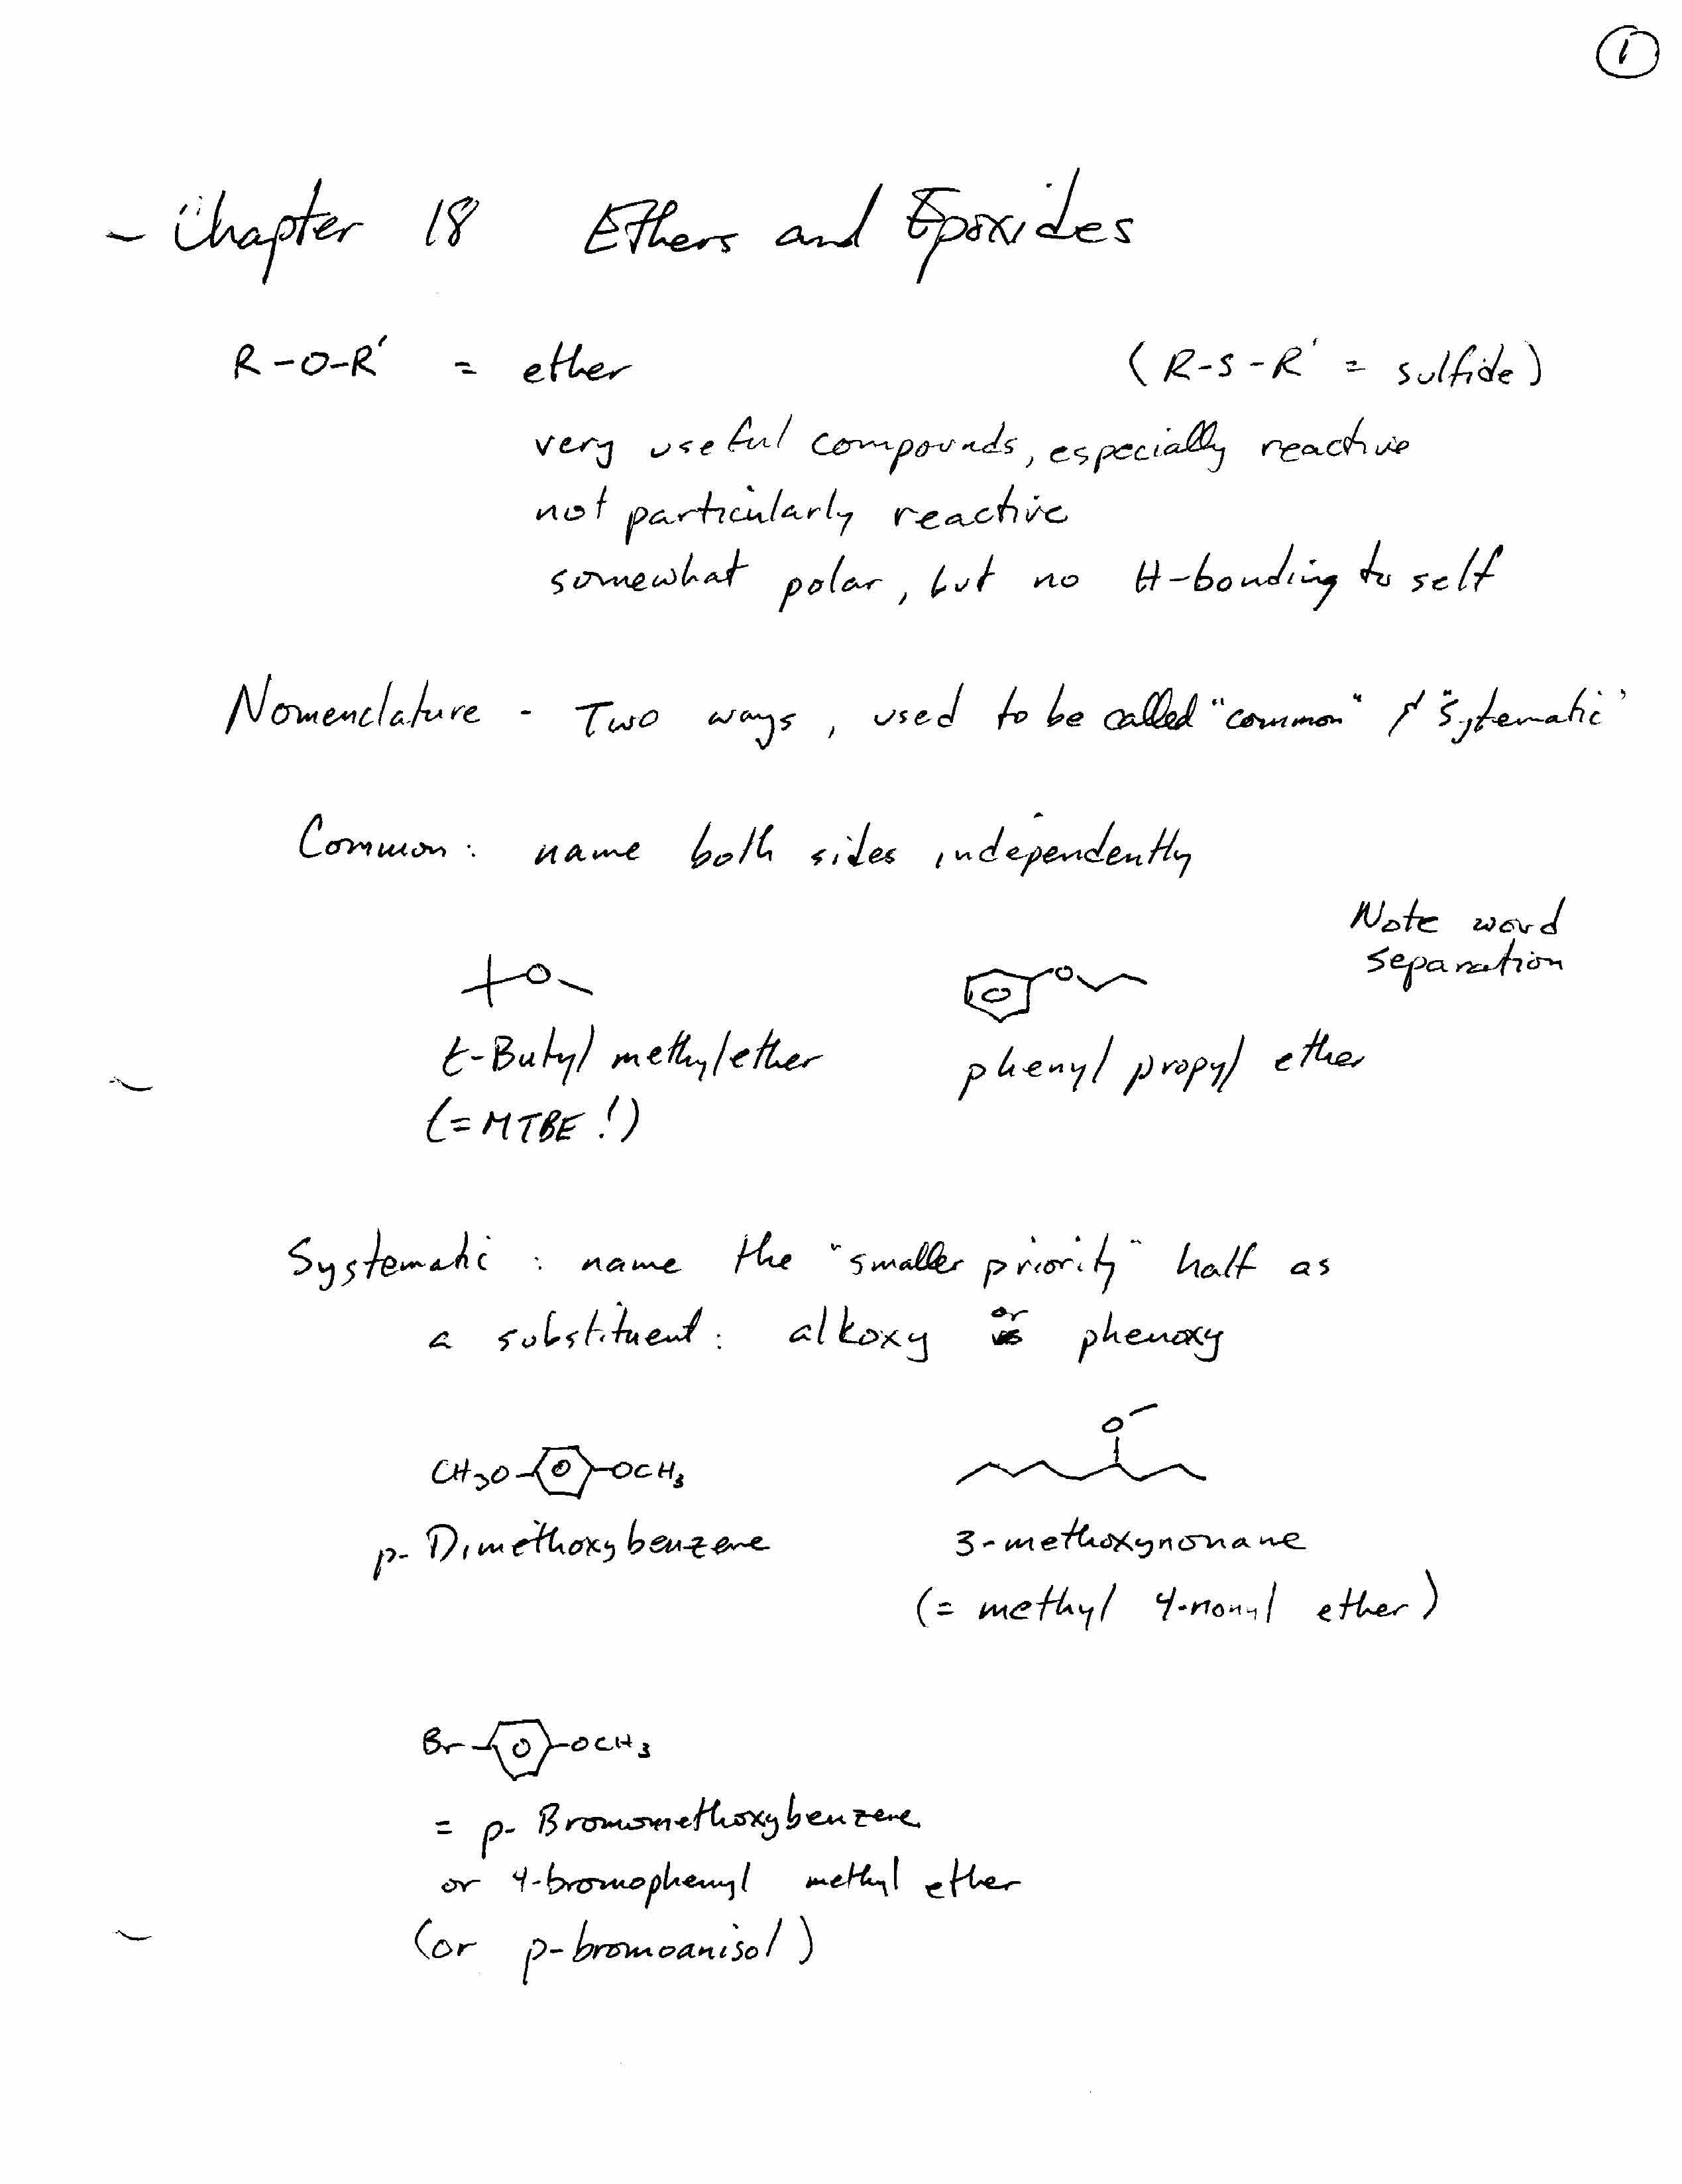 1
Chapter 18 Ethers and Epoxides
R-O-R' = ether (R-S-R' = sulfide)
very useful compounds, especially reactive
not particularly reactive
somewhat polar, but no H-bonding to self
Nomenclature - Two ways, used to be called "common" & "Sytematic"
Common: name both sides independently
Note word
separation
O O
t-Butyl methylether phenyl propyl ether
(=MTBE!)
Systematic: name the "smaller priority" half as
a substituent: alkoxy or phenoxy
O
CH3O OCH3
p-Dimethoxybenzene 3-methoxynonane
(= methyl 4-nonyl ether)
Br OCH3
= p-Bromomethoxybenzene
or 4-bromophenyl methyl ether
(or p-bromoanisol)